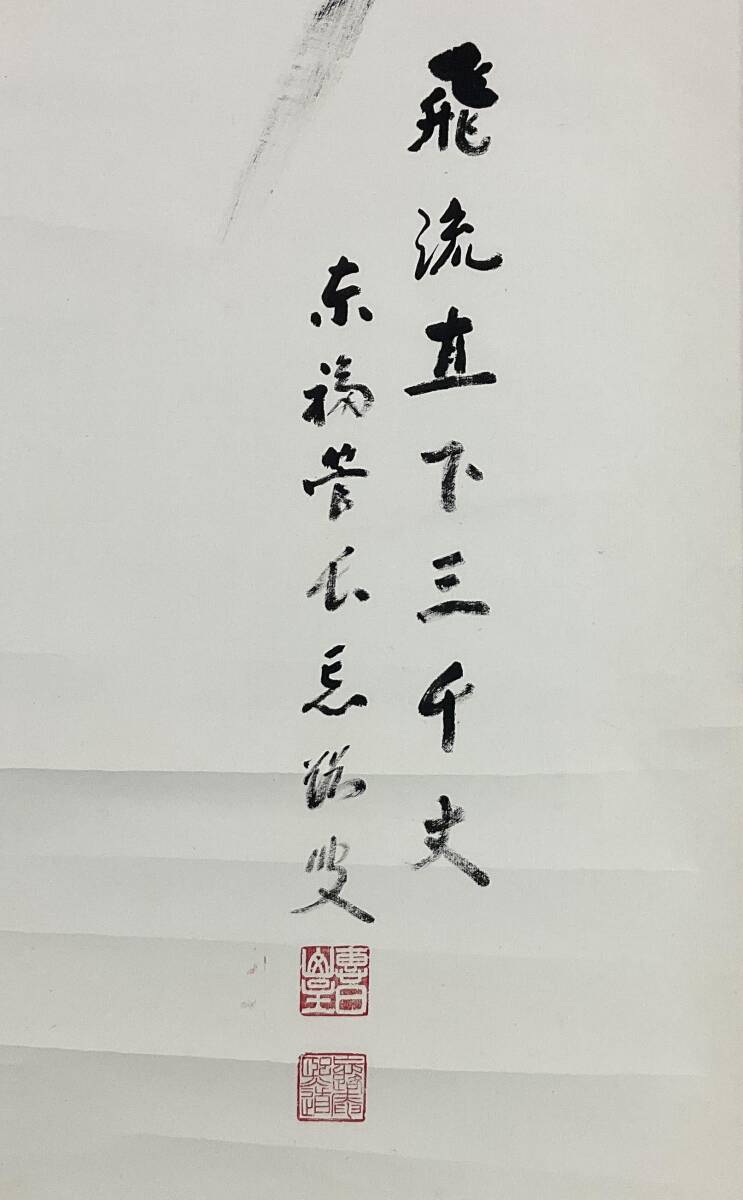 飛流直下三千丈
東福管長忘路叟